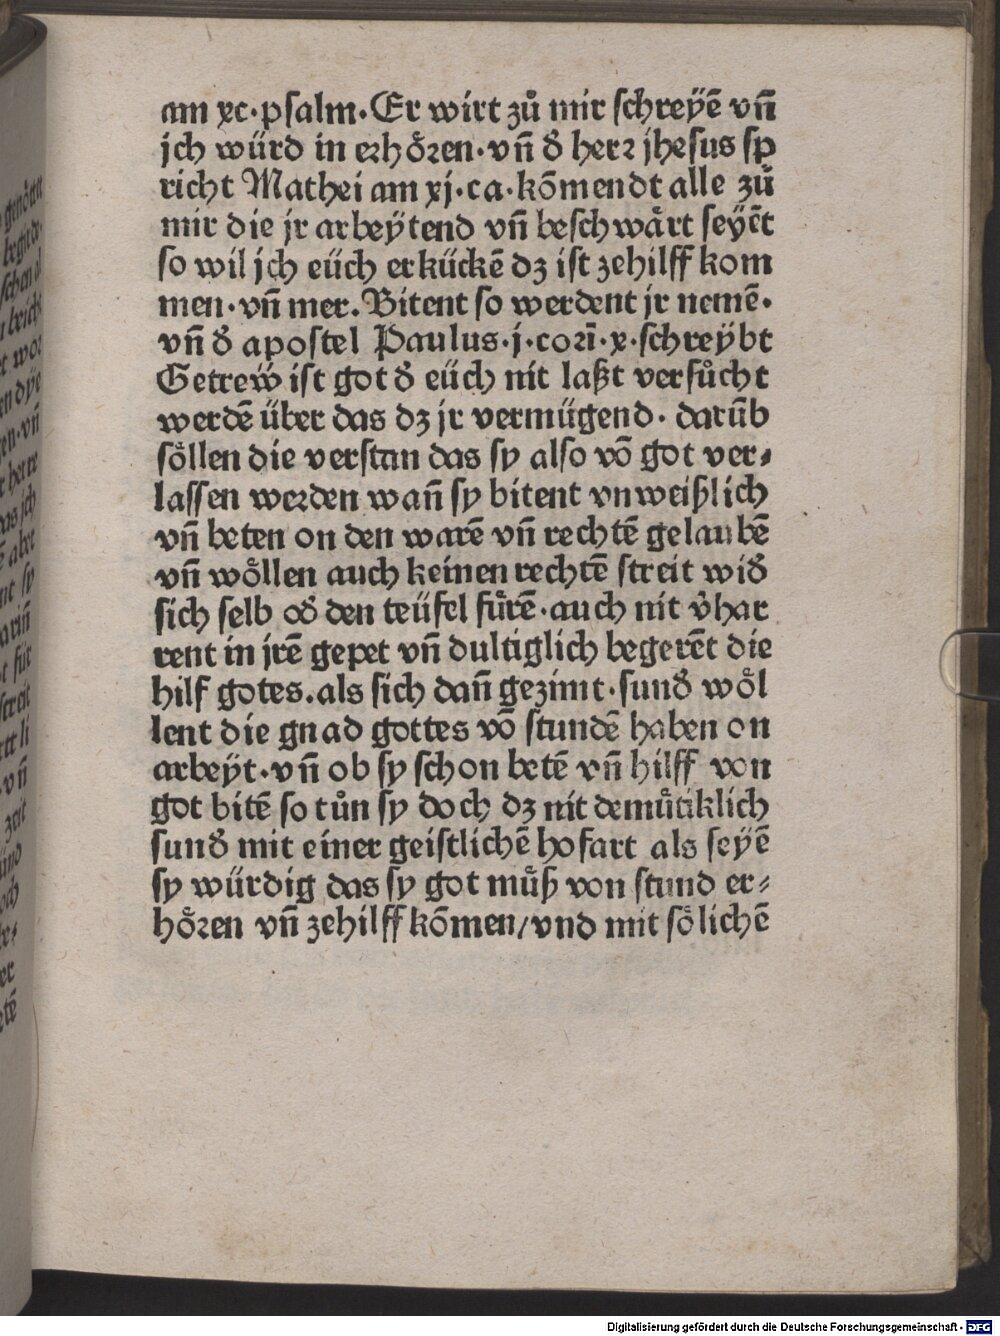 am xc·psalm·Er wirt zů mir schreyē vñ
jch würd in erhöꝛen·vñ đ herꝛ jhesus sp
richt Mathei am xj·ca·kōmendt alle zů
mir die jr arbeytend vñ beschwårt seyēt
so wil jch eüch erkückē dz ist zehilff kom
men·vñ mer. Bitent so werdent jr nemē·
vñ đ apostel Paulus·j·coꝛī·x·schreybt
Getreẅ ist got đ eüch nit laßt versůcht
werdē über das dz jr vermügend· darūb
söllen die verstan das sy also vō got ver⸗
lassen werden wañ sy bitent vnweißlich
vñ beten on den warē vñ rechtē gelaubē
vñ wöllen auch keinen rechtē streit widʾ
sich selb odʾ den teüfel fürē·auch nit v̓har
rent in jrē gepet vñ dultiglich begerēt die
hilf gotes.als sich dañ gezimt·sundʾ wöl
lent die gnad gottes vō stundē haben on
arbeyt·vñ ob sy schon betē vñ hilff von
got bitē so tůn sy doch dz nit demütiklich
sundʾ mit einer geistlichē hofart als seyē
sy würdig das sy got müß von stund er⸗
hören vñ zehilff kōmen/vnd mit sölichē
Digitalisierung gefördert durch die Deutsche Forschungsgemeinschaft - DFG